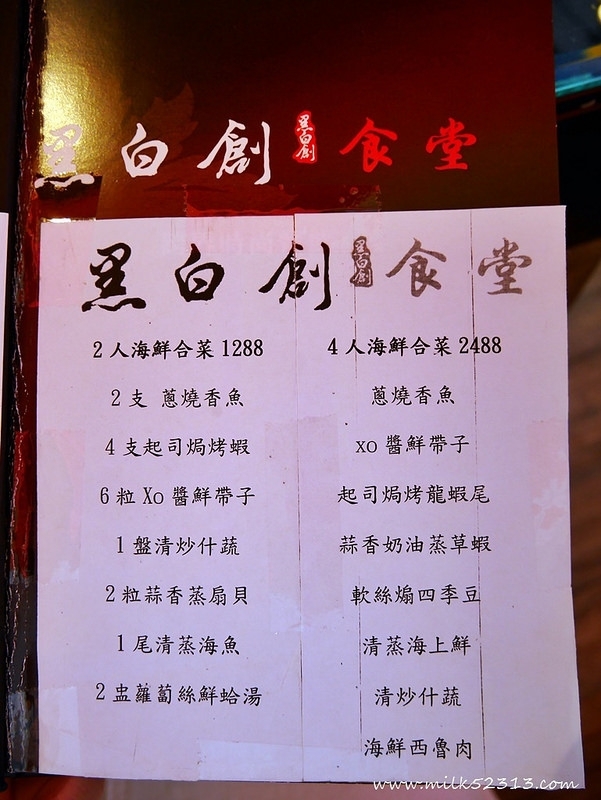 黑白創 黑白創 食堂
黑白創 黑白創 食堂
2人海鮮合菜1288
2支 蔥燒香魚
4支起司焗烤蝦
6粒Xo醬鮮帶子
1盤清炒什蔬
2粒蒜香蒸扇貝
1尾清蒸海魚
2盅蘿蔔絲鮮蛤湯
4人海鮮合菜2488
蔥燒香魚
xo醬鮮帶子
起司焗烤龍蝦尾
蒜香奶油蒸草蝦
軟絲煸四季豆
清蒸海上鮮
清炒什蔬
海鮮西魯肉
www.milk52313.com